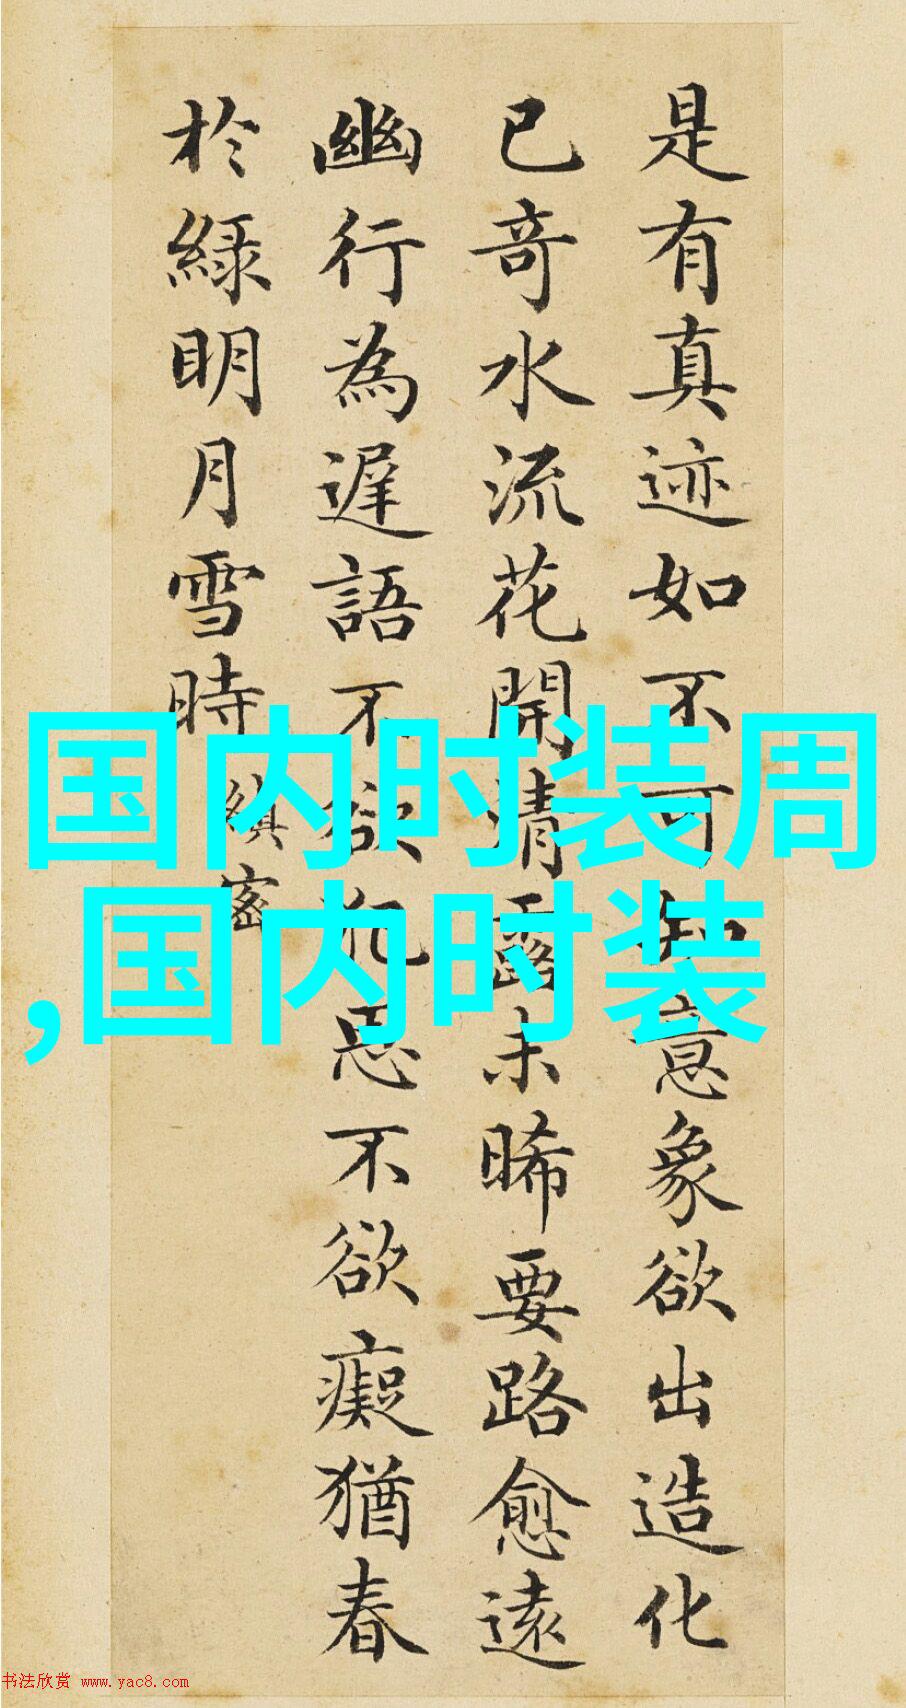 是有真迹如不可知意象欲出造化
已奇水流花開清露未晞要路愈遠
幽行為遲語不欲犯思不欲癡猶春
於綠明月雪時
縝密
国内时装周
,国内时装
书法欣赏 www.yac8.com